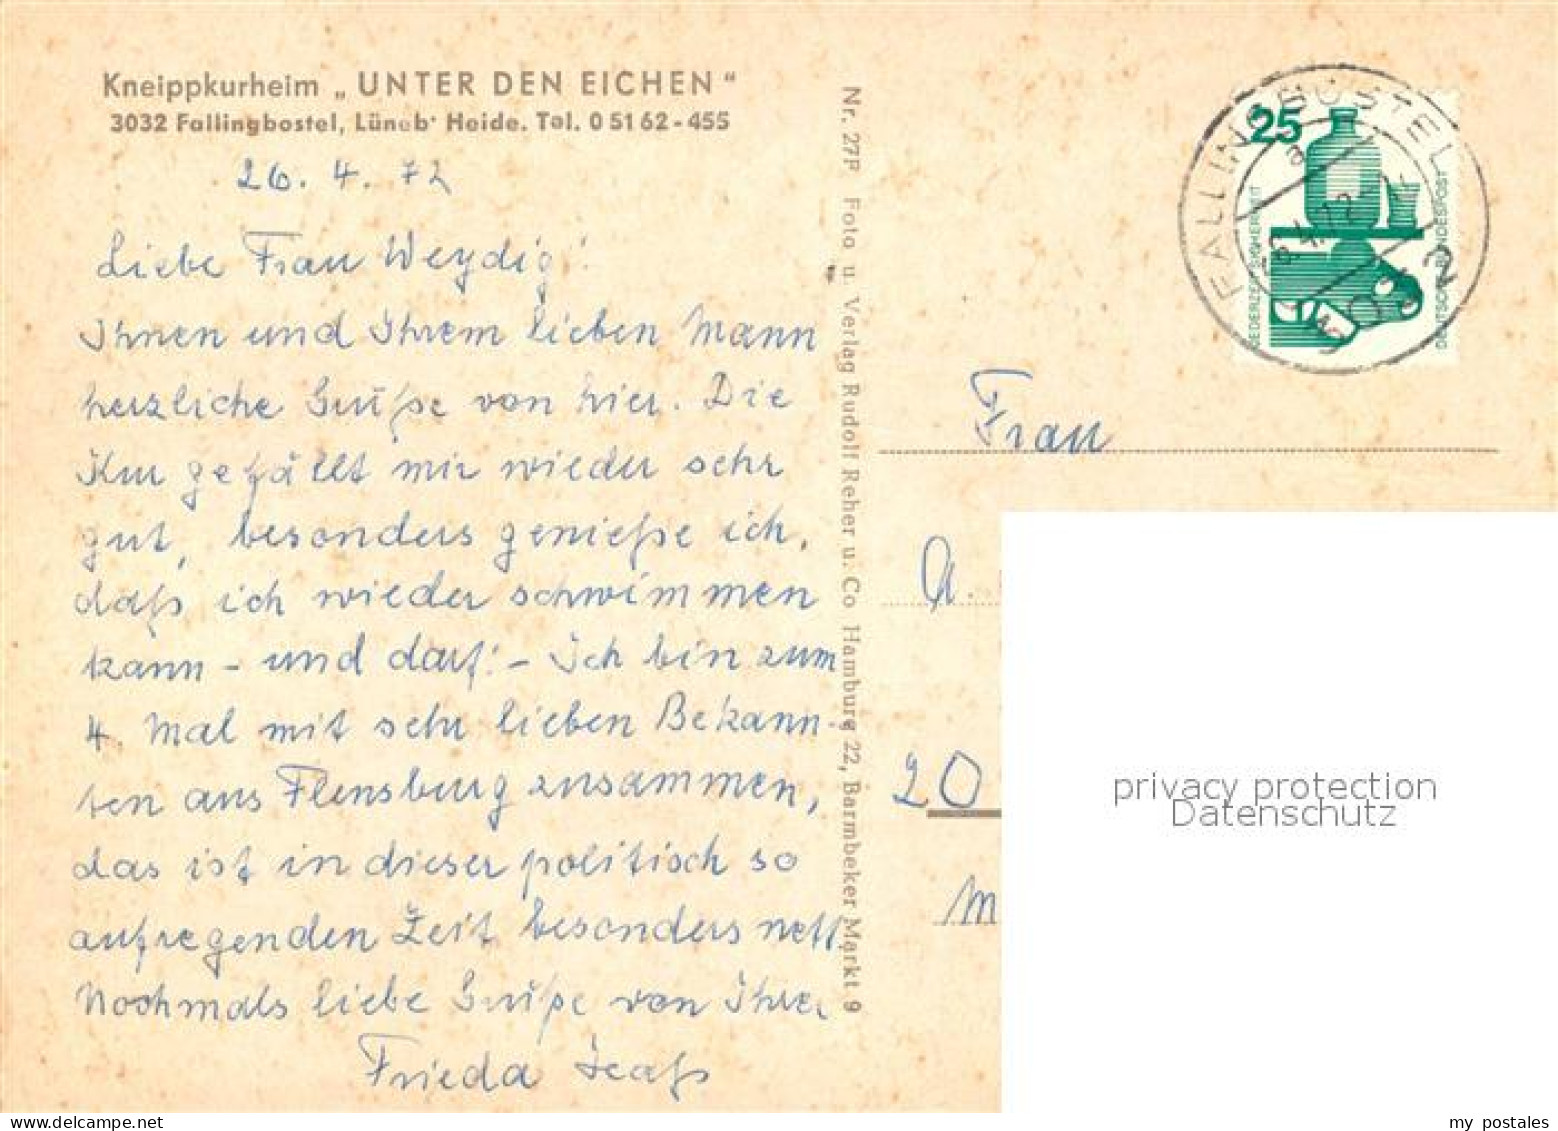 Kneippkurheim „UNTER DEN EICHEN"
3032 Fallingbostel, Lüneb· Heide. Tel. 0 51 62 - 455
26. 4. 72
Liebe Frau Weydig!
Ihnen und Ihrem lieben Mann
herzliche Grüße von hier. Die
Kur gefällt mir wieder sehr
gut, besonders genieße ich,
daß ich wieder schwimmen
kann - und darf! - Ich bin zum
4. Mal mit sehr lieben Bekann-
ten aus Flensburg zusammen,
das ist in dieser politisch so
aufregenden Zeit besonders nett.
Nochmals liebe Grüße von Ihrer
Frieda
Nr. 27F Foto u. Verlag Rudolf Reher u. Co Hamburg 22, Barmbeker Markt 9
FALLINGBOSTEL
a
3032
25
JEDERZEIT SICHERHEIT
DEUTSCHE BUNDESPOST
Frau
20
M
privacy protection
Datenschutz
my postales